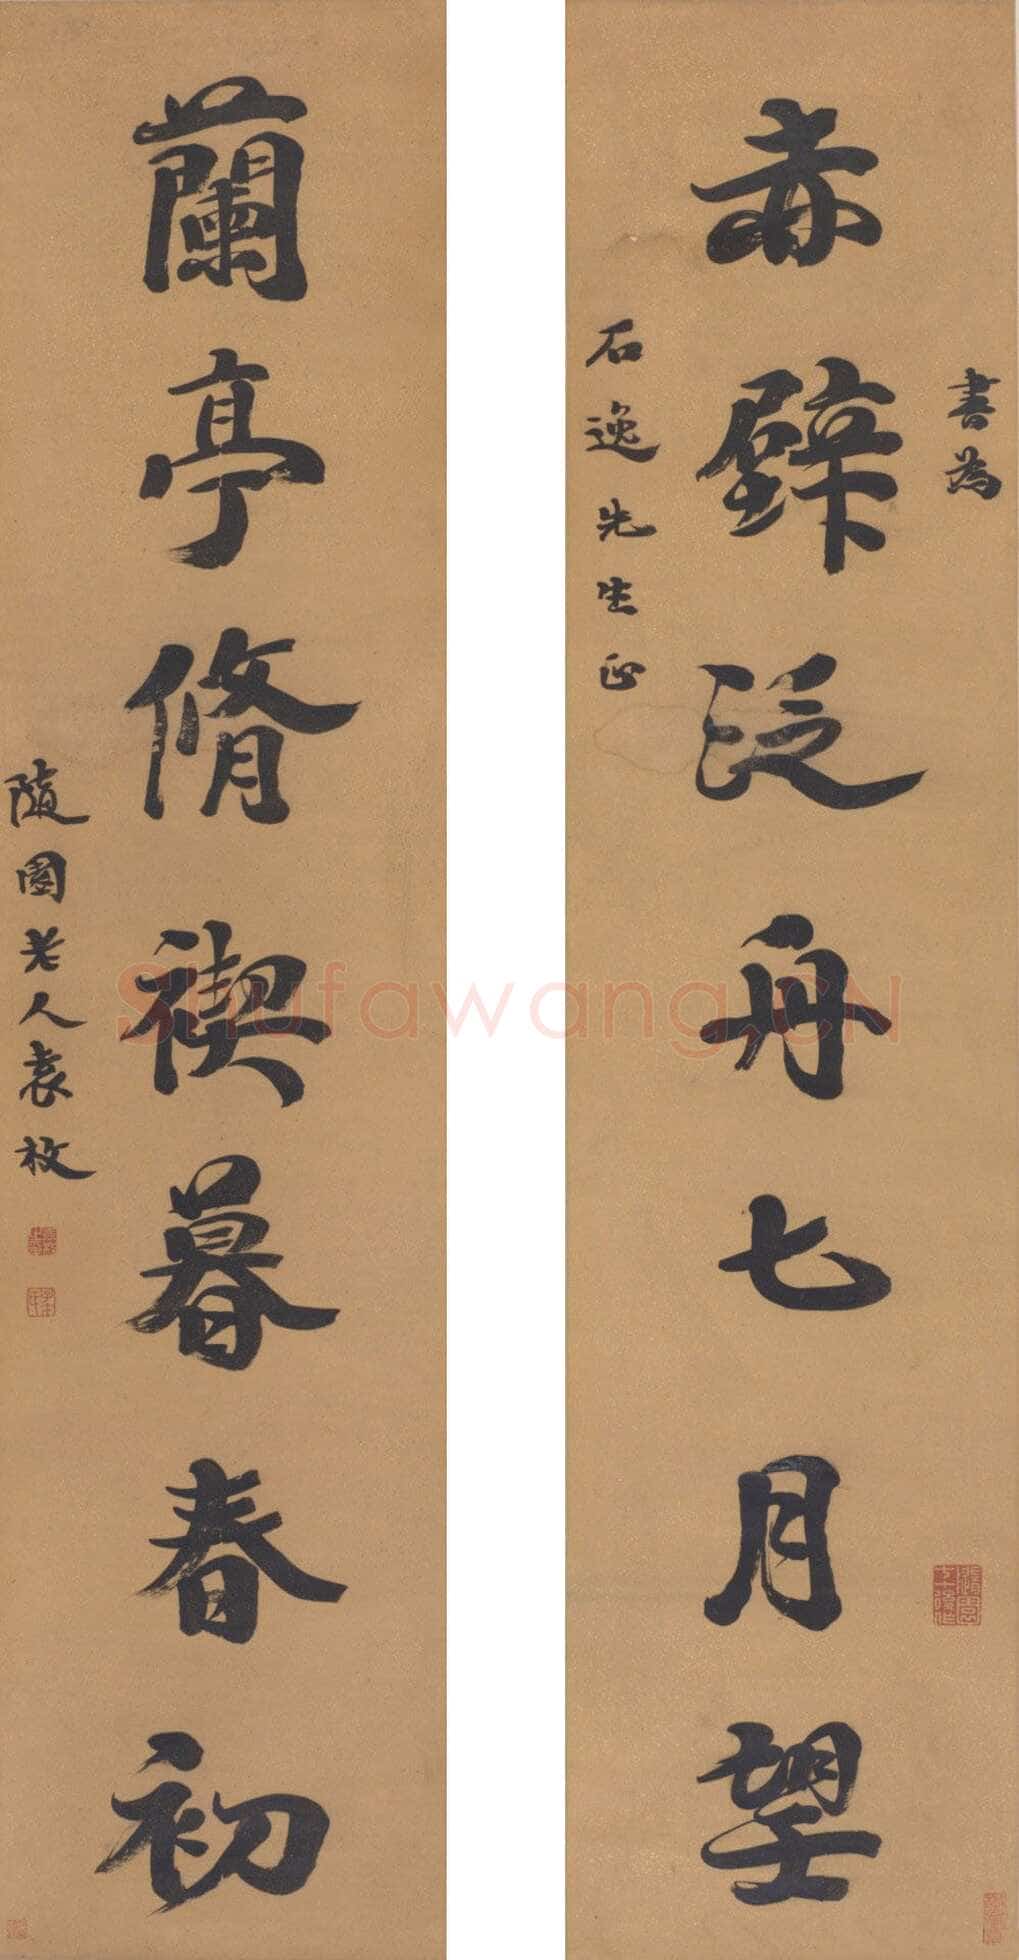 書為
赤壁泛舟七月望
石逸先生正
蘭亭脩禊暮春初
隨園老人袁枚
Shufawang.CN